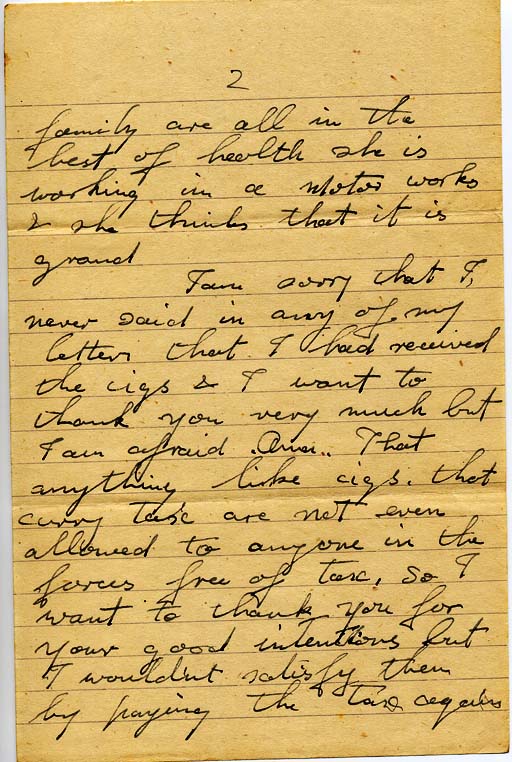 2
family are all in the
best of health she is
working in a Motor works
& she thinks that it is
grand
I am sorry that I,
never said in any of my
letters that I had received
the cigs & I want to
thank you very much but
I am afraid .. That
anything like cigs. that
carry tax are not even
allowed to anyone in the
forces free of tax, so I
want to thank you for
your good intentions but
I wouldn't satisfy them
by paying the tax